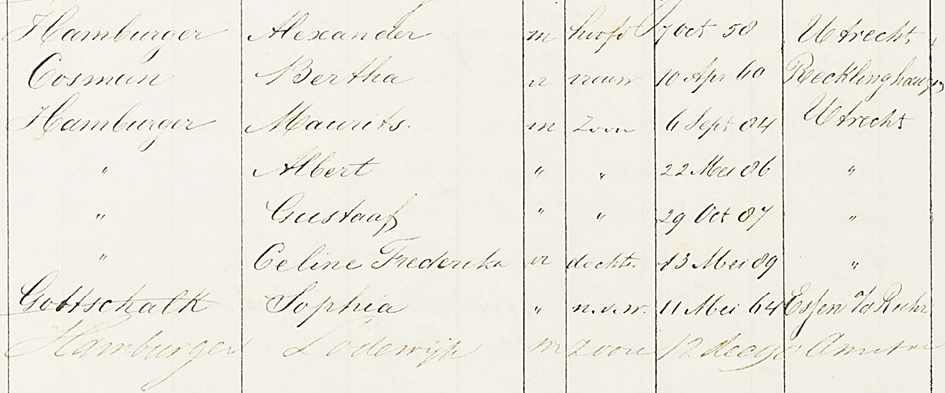 Hamburger Alexander m hoofd 7 Oct 58 Utrecht
Cosman Bertha v vrouw 10 Apr 60 Recklinghausen
Hamburger Maurits. m zoon 6 Sept 84 Utrecht
" Albert " " 22 Mei 86 "
" Gustaaf " " 29 Oct 87 "
" Celine Frederika v dochtr. 13 Mei 89 "
Gottschalk Sophia " n.v.w. 11 Mei 64 Essen a/d Ruhr
Hamburger Lodewijk m zoon 12 dec